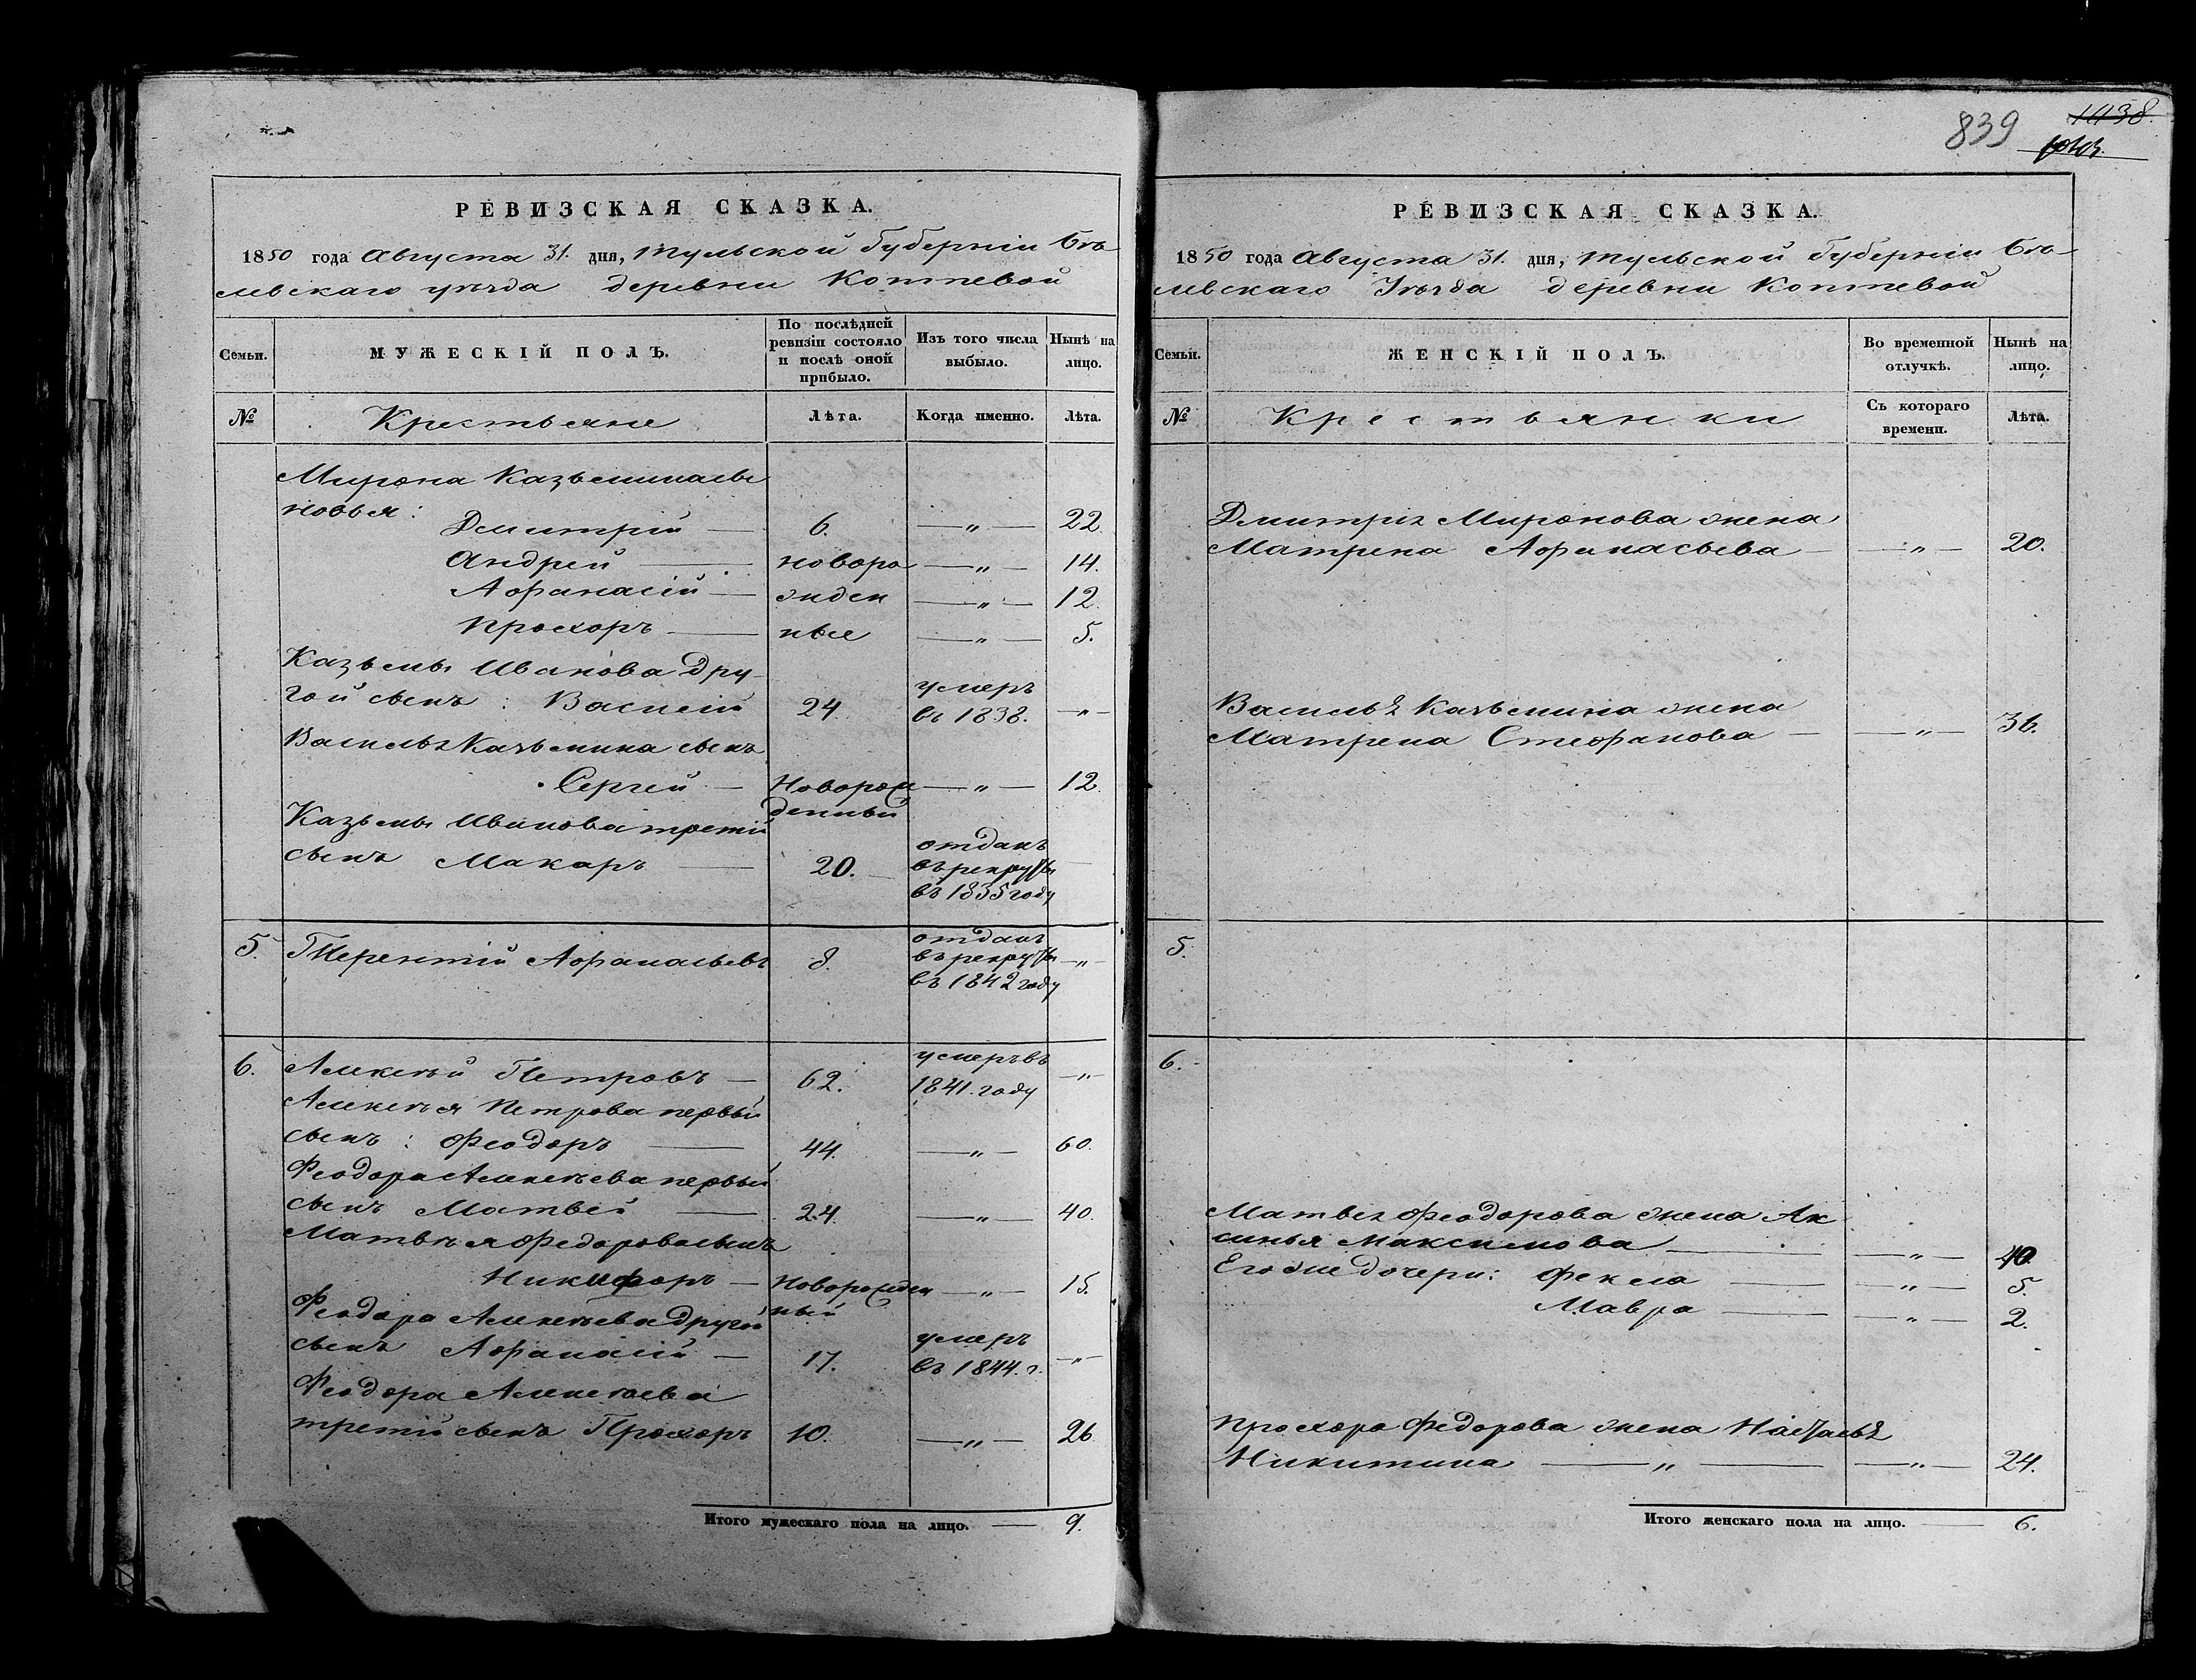 839
1438.
РЕВИЗСКАЯ СКАЗКА.
1850 года Августа 31. дня, Тульской Губерніи Бѣ
левскаго уѣзда деревни Коптевой
Семьи.
МУЖЕСКІЙ ПОЛЪ.
По послѣдней
ревизіи состояло
и послѣ оной
прибыло.
Изъ того числа
выбыло.
Нынѣ на
лицо.
№
Крестьяне
Лѣта.
Когда именно.
Лѣта.
Мирона Казьмина сы
новья:
Дмитрій — 6. — „ — 22
Андрей — новоро — „ — 14.
Афанасій — жден — „ — 12.
Прохоръ — ные — „ — 5.
Казьмы Иванова дру-
гой сынъ: Василій 24. умеръ
въ 1838. — „ —
Василья Казьмина сынъ
Сергей — Новорож — „ — 12
денный
Казьмы Иванова третій
сынъ Макаръ — 20. — отданъ
въ рекруты
въ 1835 году
5. Терентій Афанасьевъ 8. отданъ
въ рекруты — „ —
въ 1842 году
6. Алексѣй Петровъ — 62. умеръ въ
1841. году — „ —
Алексѣя Петрова первый
сынъ: Феодоръ — 44. — „ — 60.
Феодора Алексѣева первый
сынъ Матвей — 24. — „ — 40.
Матвѣя Федорова сынъ
Никифоръ — Новорожден — „ — 15.
ный
Феодора Алексѣева другой
сынъ Афанасій — 17. умеръ
въ 1844. г. — „ —
Феодора Алексѣева
третій сынъ Прохоръ 10. — „ — 26
Итого мужескаго пола на лицо. — 9.
РЕВИЗСКАЯ СКАЗКА.
1850 года Августа 31. дня, Тульской Губерніи Бѣ-
левскаго Уѣзда деревни Коптевой
Семьи.
ЖЕНСКІЙ ПОЛЪ.
Во временной
отлучкѣ.
Нынѣ на
лицо.
№
Крестьянки
Съ котораго
времени.
Лѣта.
Дмитрія Миронова жена
Матрена Афанасьева — „ — 20.
Василья Казьмина жена
Матрена Стефанова — „ — 36.
5.
6.
Матвея Феодорова жена Ак
синья Максимова — „ — 40
Его же дочери: Фекла — „ — 5.
Мавра — „ — 2.
Прохора Федорова жена Настасья
Никитина — „ — „ — 24.
Итого женскаго пола на лицо. — 6.